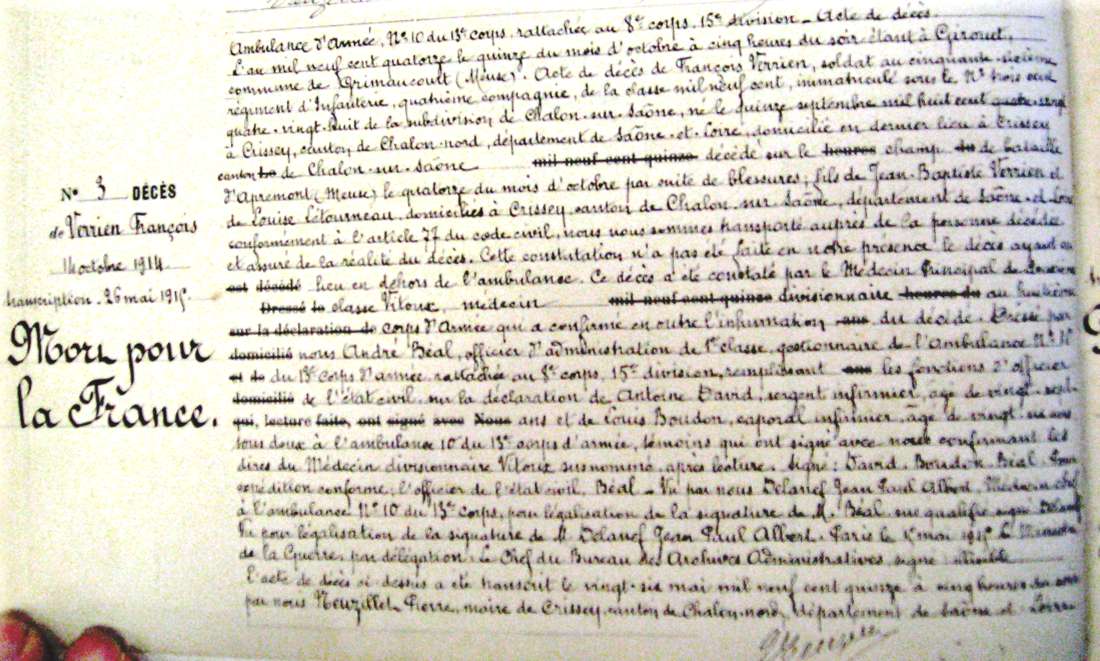 Ambulance d'Armée, N° 10 du 13e corps rattachée au 8e corps 15e division - Acte de décès.
L'an mil neuf cent quatorze le quinze du mois d'octobre à cinq heures du soir étant à Girouet,
commune de Grimaucourt (Meuse). Acte de décès de François Verrien, soldat au cinquante-sixième
régiment d'Infanterie, quatrième compagnie, de la classe mil neuf cent, immatriculé sous le N° trois cent
quatre-vingt-huit de la subdivision de Chalon-sur-Saône, né le quinze septembre mil huit cent quatre-vingt
à Crissey, canton de Chalon-nord, département de Saône-et-Loire, domicilié en dernier lieu à Crissey
canton de Chalon-sur-Saône mil neuf cent quinze décédé sur le heures champ du de bataille
N° 3 DÉCÈS
de Verrien François
14 octobre 1914
transcription. 26 mai 1915.
Mort pour
la France.
d'Apremont (Meuse) le quatorze du mois d'octobre par suite de blessures; fils de Jean-Baptiste Verrien et
de Louise Létourneau, domiciliés à Crissey, canton de Chalon-sur-Saône, département de Saône-et-Loire
conformément à l'article 77 du code civil, nous nous sommes transporté auprès de la personne décédée
et assuré de la réalité du décès. Cette constatation n'a pas été faite en notre présence le décès ayant eu
est décédé lieu en dehors de l'ambulance. Ce décès a été constaté par le Médecin Principal de
Dressé le classe Vitoux, médecin mil neuf cent quinze divisionnaire heures du au huitième
sur la déclaration de corps d'Armée qui a confirmé en outre l'information ans du décédé. Dressé par
domicilié nous André Béal, officier d'administration de 1re classe, gestionnaire de l'Ambulance N° 10
et de du 13e Corps d'armée rattachée au 8e corps, 15e division, remplissant ans les fonctions d'officier
domicilié de l'état civil, sur la déclaration de Antoine David, sergent infirmier, âgé de vingt-sept
qui, lecture faite, ont signé avec Nous ans et de Louis Boudon, caporal infirmier, âgé de vingt-six ans
tous deux à l'ambulance 10 du 13e corps d'armée, témoins qui ont signé avec nous confirmant les
dires du Médecin divisionnaire Vitoux susnommé, après lecture. Signé: David. Boudon. Béal. Pour
expédition conforme, l'officier de l'état civil, Béal - Vu par nous Delanef Jean Paul Albert, Médecin chef
à l'ambulance N° 10 du 13e corps, pour légalisation de la signature de M. Béal, sus qualifié signé Delanef
Vu pour légalisation de la signature de M. Delanef Jean Paul Albert. Paris le 15 mai 1915 Le Ministre
de la Guerre, par délégation. Le Chef du Bureau des Archives Administratives signé: illisible
L'acte de décès ci-dessus a été transcrit le vingt-six mai mil neuf cent quinze à cinq heures du soir
par nous Neuzillet Pierre, maire de Crissey, canton de Chalon-nord, département de Saône et Loire